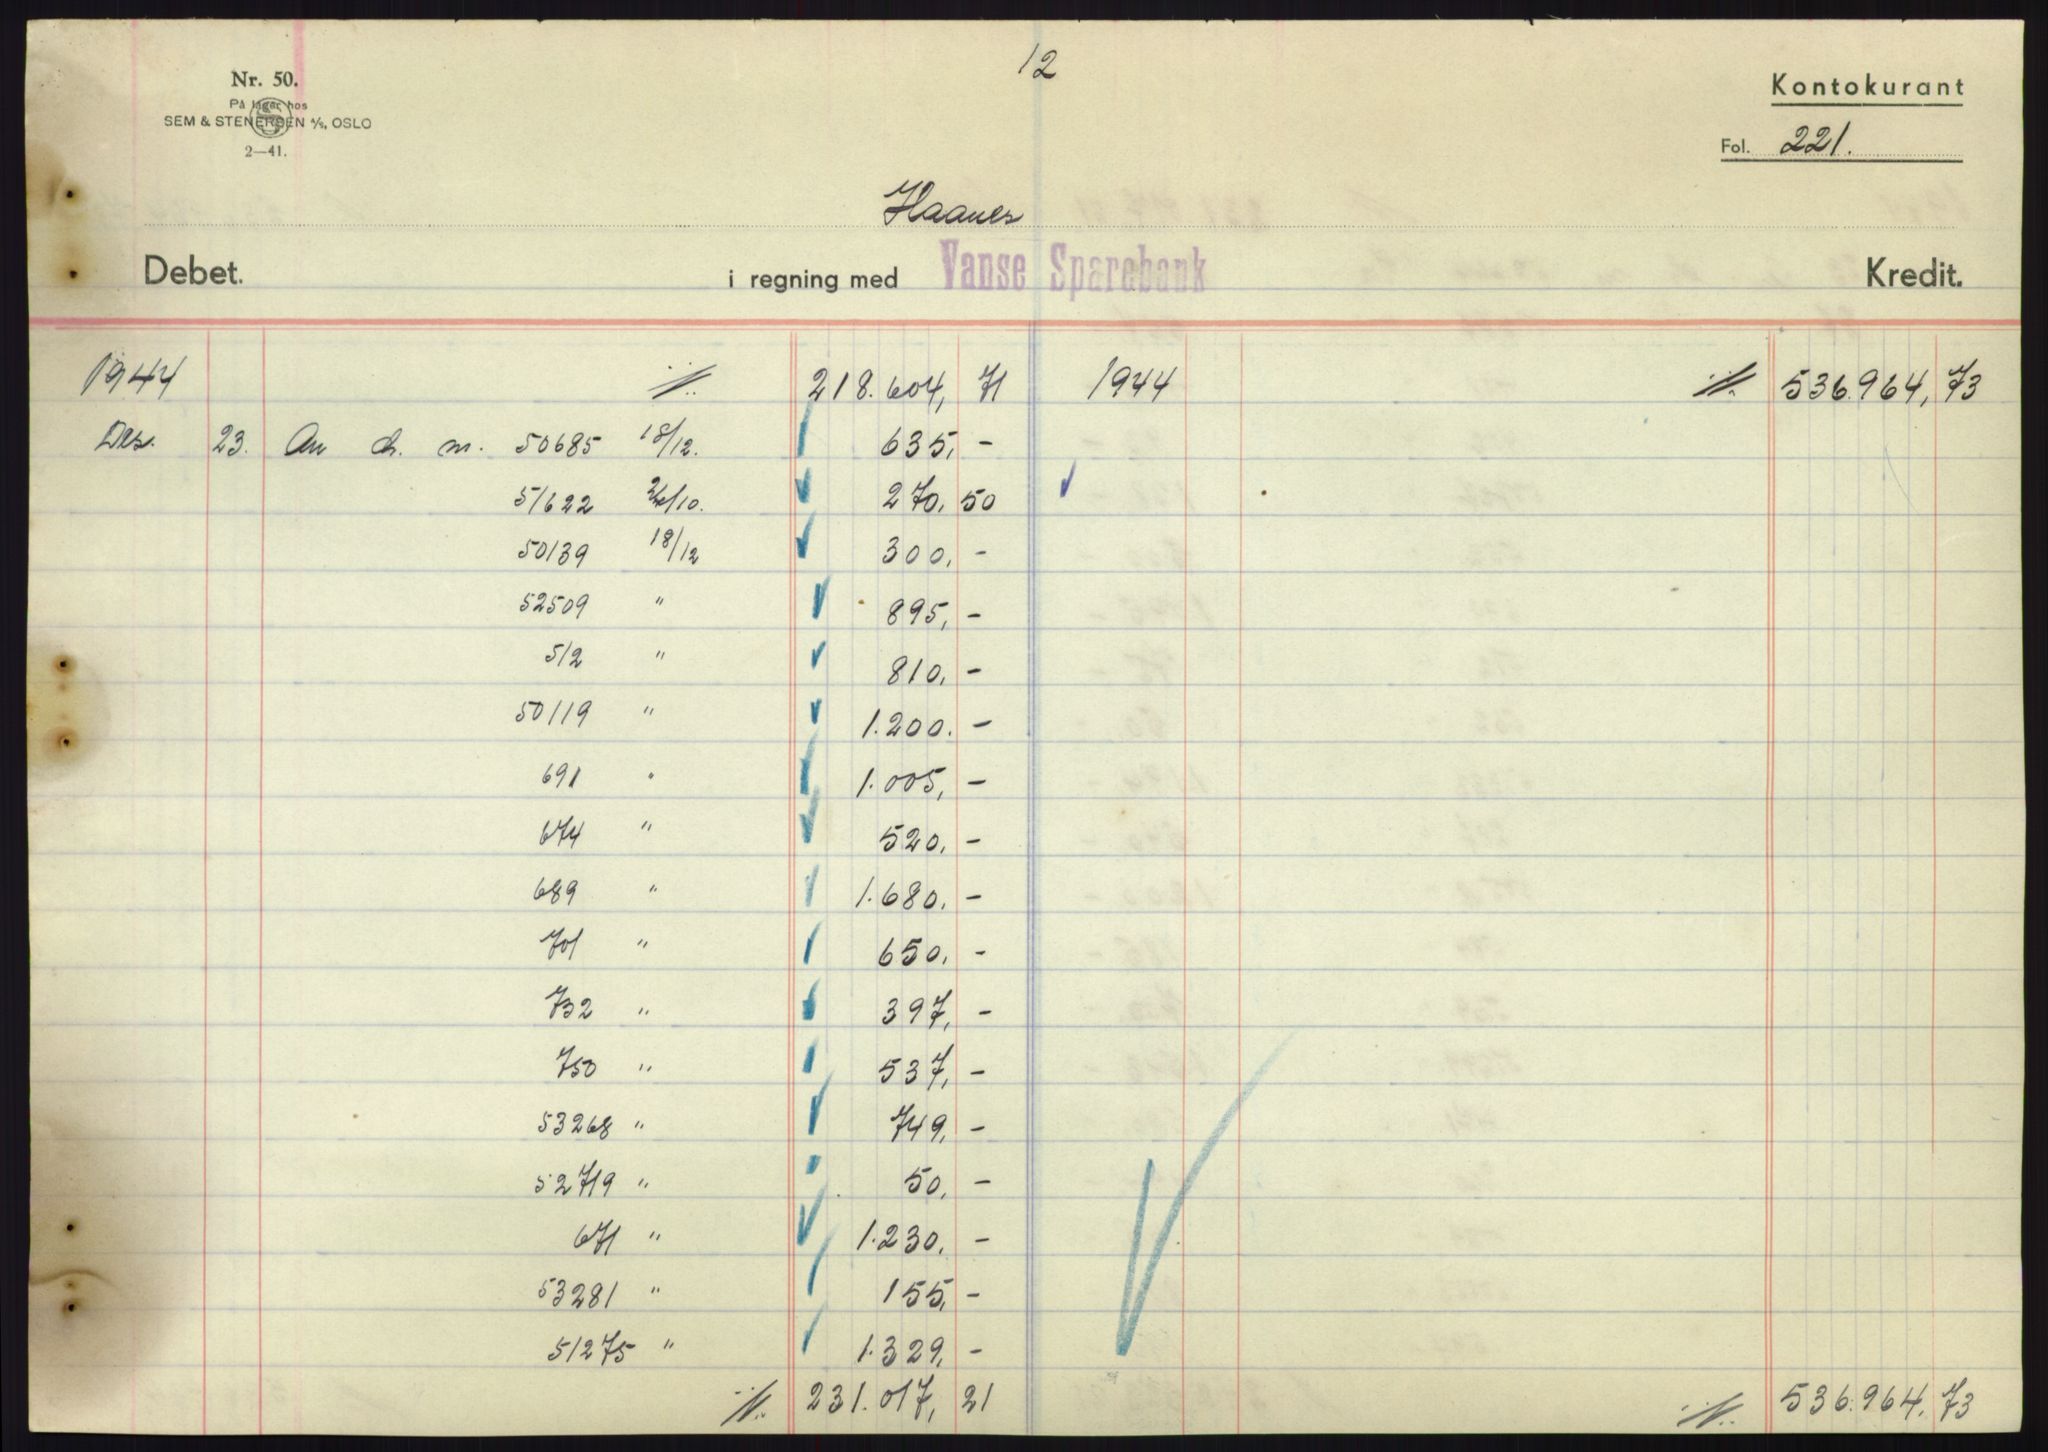 12
Nr. 50.
På lager hos
SEM & STENERSEN A/S, OSLO
2—41.
Kontokurant
Fol. 221.
Haanes
Debet. i regning med Vanse Sparebank Kredit.
1944 218.604, 71 1944 536.964, 73
Des. 23. An ch. nr. 50685 18/12. 635, -
51622 24/10. 270, 50
50139 18/12 300, -
52509 " 895, -
512 " 810, -
50119 " 1.200. -
691 " 1.005, -
674 " 520, -
689 " 1.680. -
701 " 650, -
732 " 397, -
750 " 537, -
53268 " 749, -
52719 " 50, -
671 " 1.230, -
53281 " 155, -
51275 " 1.329, -
231.017, 21 536.964, 73